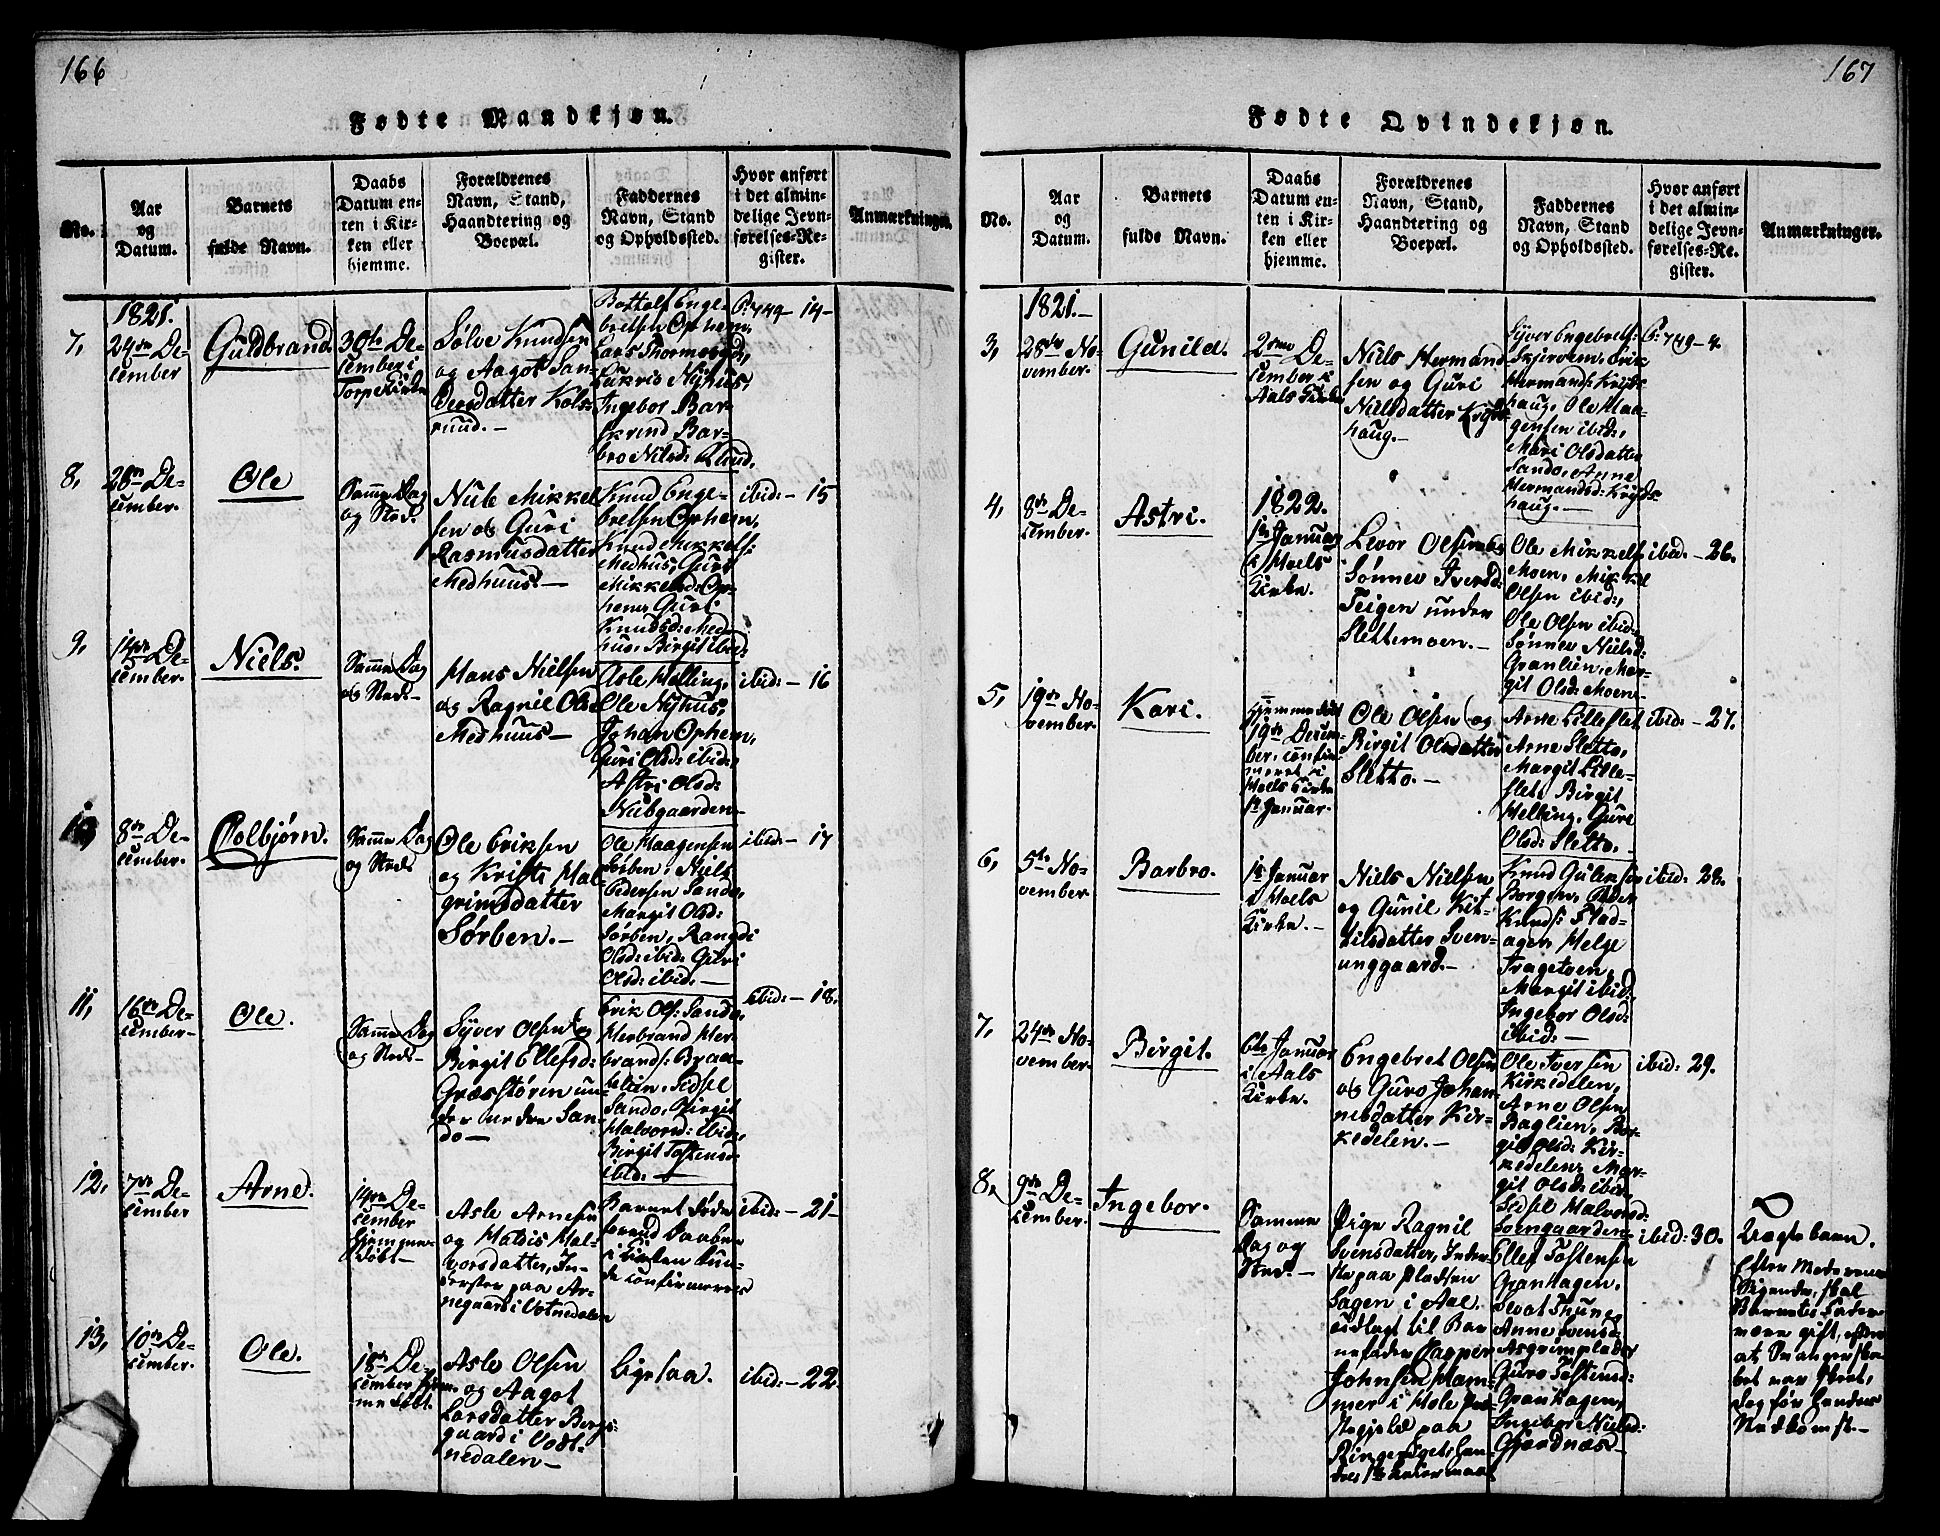 166
Fødte Mandkjøn.
No.
Aar
og
Datum.
Barnets
fulde Navn.
Daabs
Datum en-
ten i Kir-
ken eller
hjemme.
Forældrenes
Navn, Stand,
Haandtering og
Boepæl.
Faddernes
Navn, Stand
og Opholdssted.
Hvor anført
i det almin-
delige Jevn-
førelses-Re-
gister.
Anmærkninger.
1821.
7,
24de De-
cember
Guldbrand.
30te De-
cember i
Torpe Kirke
Sølve Knudsen
og Aagot San-
dersdatter Kols-
ruud.-
Bottolf Enge-
bretsen Ophem,
Lars Thormodsgd,
Ingebor Bar-
skrind Bar-
bro Nilsd: Ruud.
P: 749 - 14-
8,
28de De-
cember.
Ole
Samme Dag
og Sted.
Nub Mikkel-
sen og Guri
Rasmusdatter
Medhuus.-
Knud Enge-
bretsen Ophem,
Knud Mikkels:
Medhus, Guri
Mikkelsd: Op-
hem, Guri
Knudsd: Med-
hus, Birgit ibid:
ibid: - 15
9,
14de De-
cember.
Niels.
Samme Dag
og Sted-
Hans Nielsen
og Ragnil Olsd
Medhuus-
Asle Helling,
Ole Nyhus,
Johan Ophem,
Guri Olsd: ibid:,
Astri Olsd:
Nubgaarden-
ibid: - 16
10,
8de De-
cember.
Colbjørn.
Samme Dag
og Sted
Ole Eriksen
og Kristi Hal-
grimsdatter
Sørben.-
Ole Haagensen
Sørben, Niels
Pedersen Sando,
Margit Olsd:
Sørben, Rangdi
Olsd: ibid: Guri
Olsd: ibid:-
ibid: - 17
11,
16de De-
cember-
Ole.
Samme Dag
og Sted-
Syver Olsen og
Birgit Ellefsd:
Græsstøren un-
der nedre San-
do-
Erik Ols: Sando,
Herbrand Her-
brands: Braa-
telien, Sidsel
Sando, Birgit
Halvorsd: ibid:,
Birgit Tostensd:
ibid:-
ibid: - 18.
12,
7de De-
cember
Arne.
14de De-
cember
hjemme-
døbt-
Asle Arnesen
og Maldis Hal-
vorsdatter, In-
derster paa Ar-
negaard i Votnedalen
Barnet døde
forend Daaben
i Kirken kun-
de confirmeres
ibid: - 21-
13,
10de De-
cember.
Ole.
18de De-
cember hjem-
me døbt.
Asle Olsen
og Aagot
Larsdatter Berg-
gaard i Vodt-
nedalen-
Ligesaa.
ibid: - 22
167
Fødte Qvindekjøn.
No.
Aar
og
Datum.
Barnets
fulde Navn.
Daabs
Datum en-
ten i Kir-
ken eller
hjemme.
Forældrenes
Navn, Stand,
Haandtering og
Boepæl.
Faddernes
Navn, Stand
og Opholdssted.
Hvor anført
i det almin-
delige Jevn-
førelses-Re-
gister.
Anmærkninger.
1821.-
3,
28de No-
vember.
Gunild.
2den De-
cember i
Aals Kirke
Niels Hermand-
sen og Guri
Nielsdatter Kryds-
haug.-
Syver Engebrets:
Skjervem, Erik
Hermands: Kryds-
haug, Ole Haa-
gensen ibid:,
Mari Olsdatter
Sando, Anne
Hermandsd: Kryds-
haug.-
P: 749 - 4.
4,
8de De-
cember.
Astri.
1822.
1te Januar
i Hoels
Kirke.
Levor Olsen og
Sønnev Iversd:
Teigen under
Slettemoen.-
Ole Mikkels:
Moen, Mikkel
Olsen ibid:,
Ole Olsen ibid:
Sønnev Nielsd:
Granlien, Mar-
git Olsd: Moen-
ibid: - 26.
5,
19de No-
vember.
Kari.
Hjemmedøbt
19de Decem-
ber, confir-
meret i
Hoels Kirke
1te Januar.
Ole Olsen og
Birgit Olsdatter
Sletto.-
Arne Lilleslet,
Arne Sletto,
Margit Lille-
slet, Birgit
Helling, Guri
Olsd: Sletto.-
ibid: - 27.
6,
5te No-
vember.
Barbro.
1te Januar
i Hoels
Kirke.-
Niels Nielsen
og Gunil Kit-
tilsdatter Sven-
unggaard.-
Knud Guliksen
Borgen, Peder
Knuds: Stad-
agen, Helge
Trageton,
Margit ibid,
Ingebor Olsd:
ibid:-
ibid: 28.
7,
24de No-
vember.
Birgit.
6te Januar
i Aals
Kirke.
Engebret Olsen
og Guro Johan-
nesdatter Kir-
kedelen.-
Ole Iversen
Kirkedelen,
Arne Olsen
Baglien, Bor-
gil Olsd: Kir-
kedelen, Mar-
git Olsd: ibid:
Sidsel Halvorsd:
Svengaarden-
ibid: 29.
8,
9de De-
cember.
Ingebor.
Samme
Dag og
Sted.-
Pige Ragnil
Svensdatter, Inder-
ste paa Pladsen
Hagen i Aal.
Udlagt til Bar-
nefader Casper
Johnsen Ham-
mer i Hole Præ-
stegjeld paa
Ringerige, hans
Ellef Tostensen
Granhagen,
Sevat Thune,
Anne Svensd:
Asgrimsplads,
Guro Tostensd:
Granhagen,
Ingebor Nielsd:
Gjerdnæs-
ibid: 30.
Uægte barn.
Efter Moderens
Sigende, skal
Barnets Fader
være gift, efter
at Svangerska-
bet var skeet,
dog før hendes
Nedkomst-